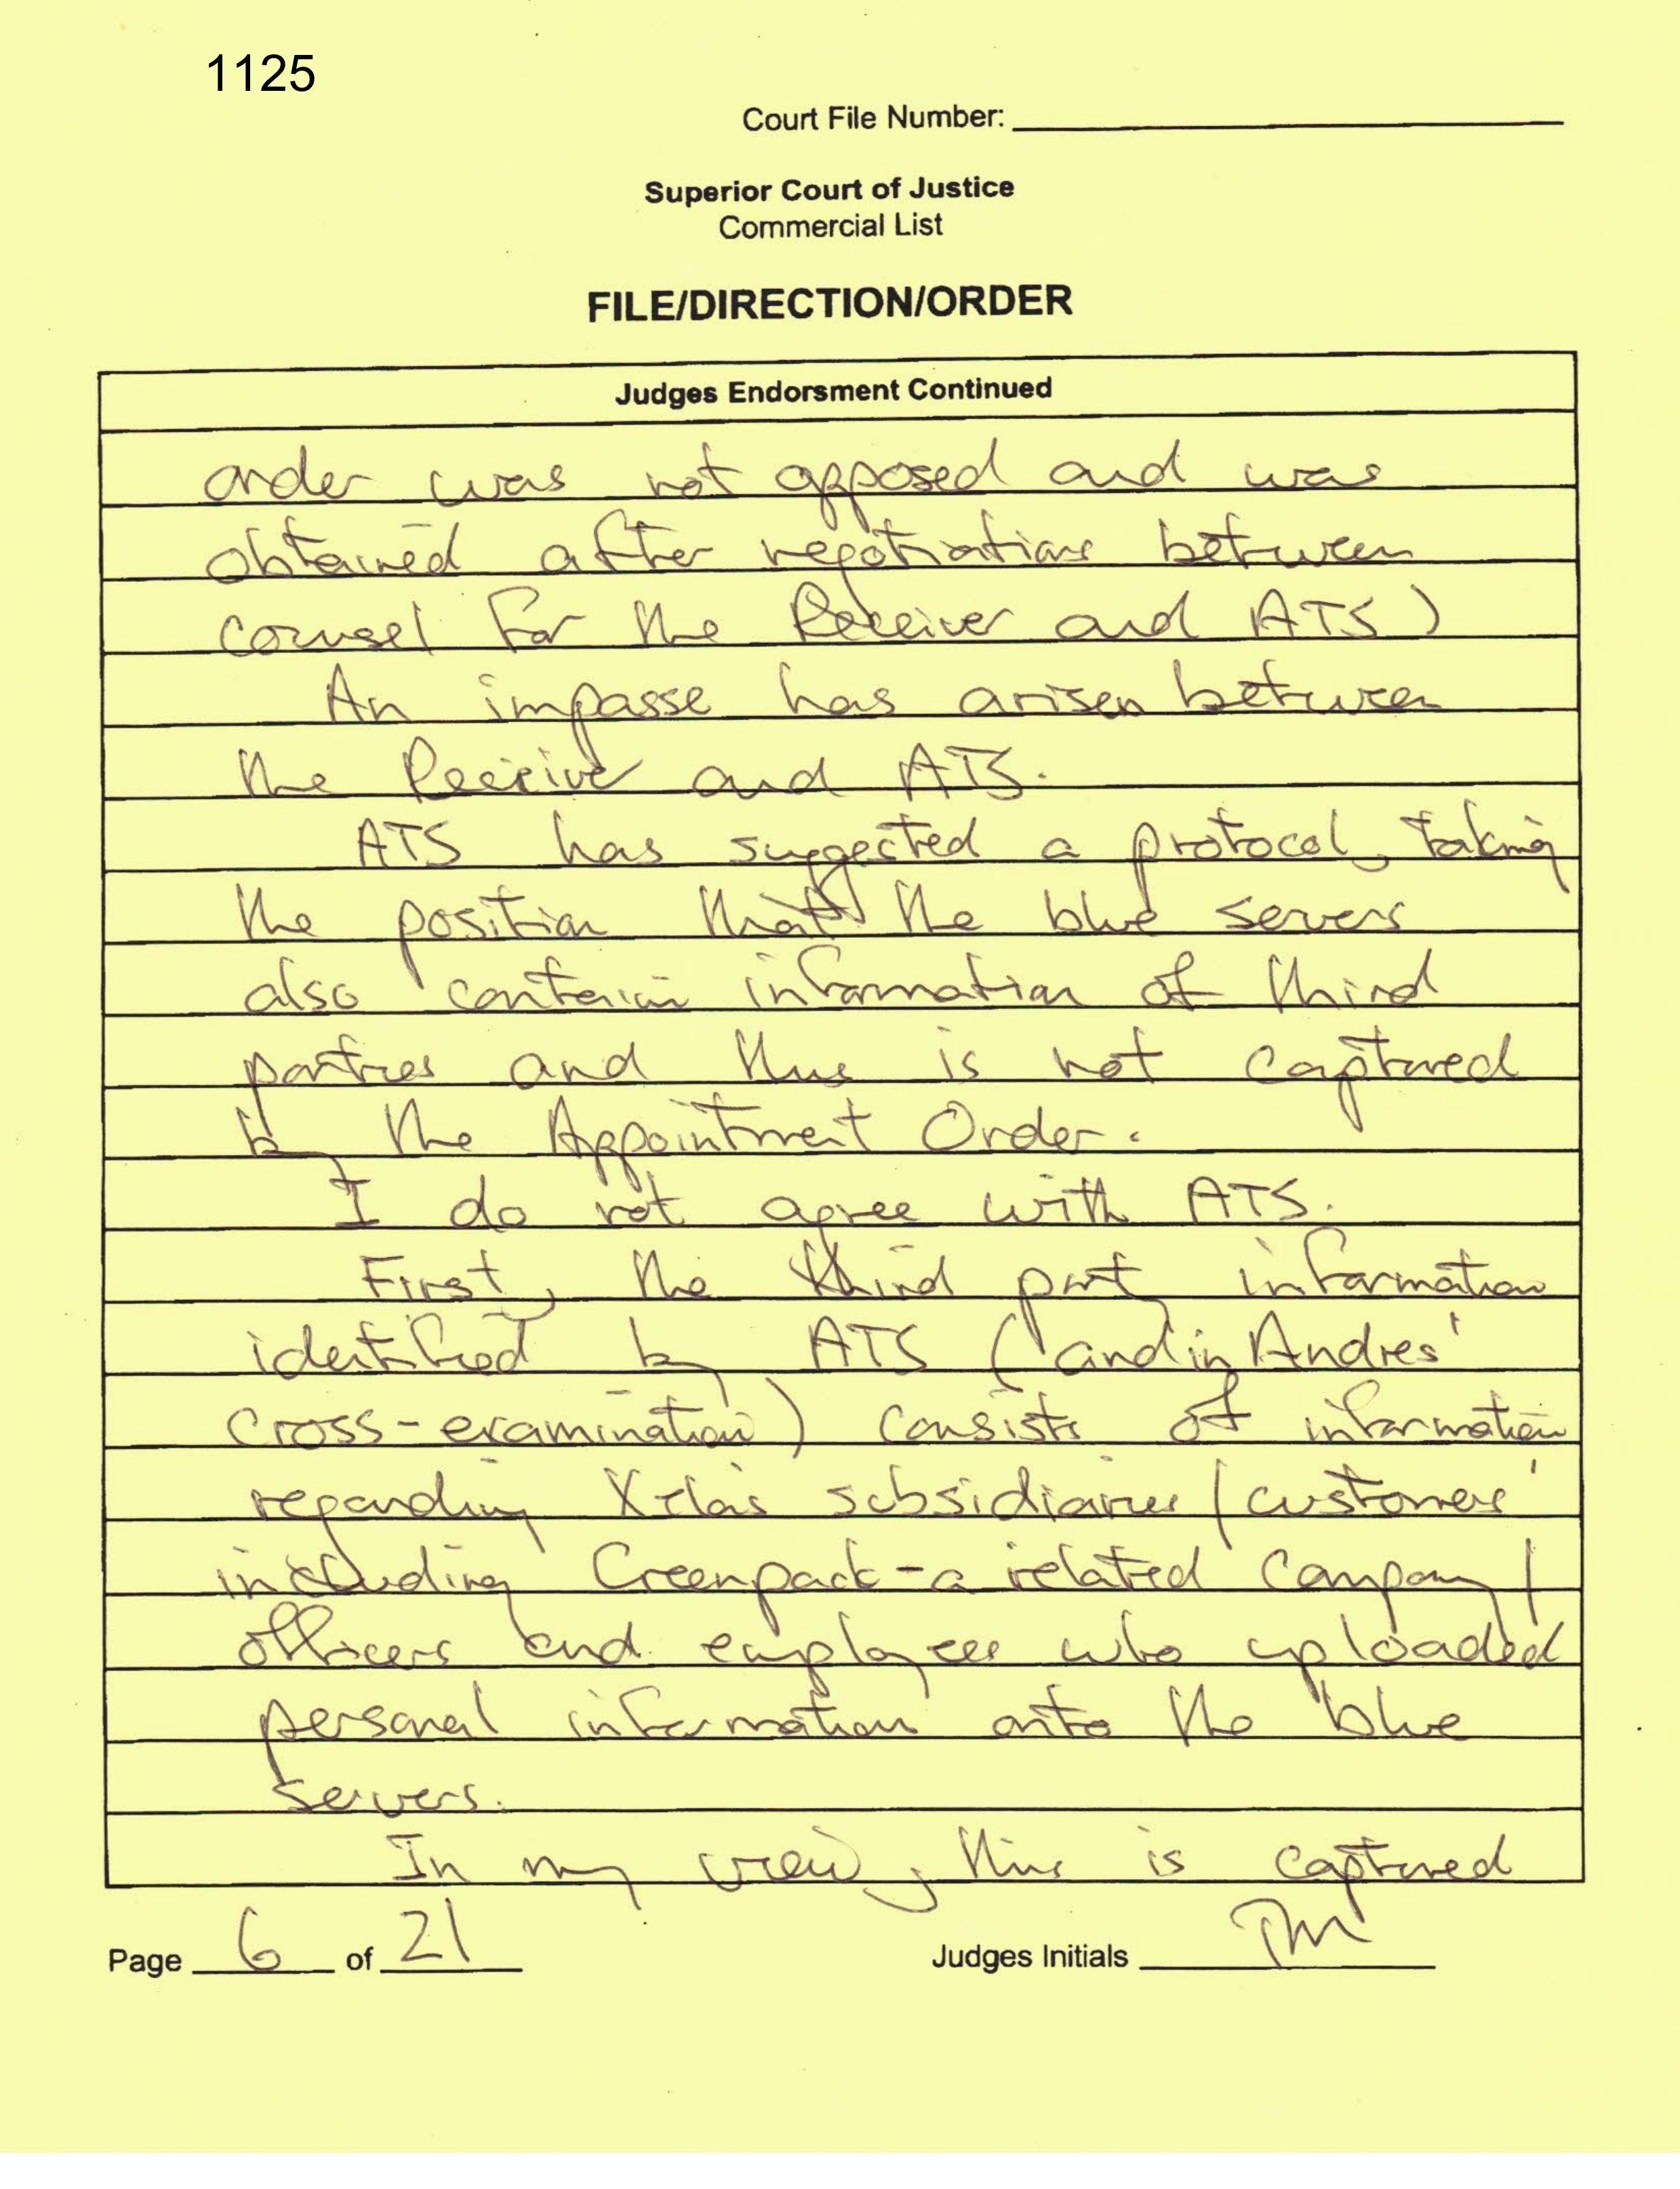 1125
Court File Number:
Superior Court of Justice
Commercial List
FILE/DIRECTION/ORDER
Judges Endorsment Continued
order was not opposed and was
obtained after negotiations between
counsel for the Receiver and ATS)
An impasse has arisen between
the Receiver and ATS.
ATS has suggested a protocol, taking
the position that the blue servers
also contain information of third
parties and thus is not captured
by the Appointment Order.
I do not agree with ATS.
First, the third party information
identified by ATS (and in Andres'
cross-examination) consists of information
regarding Xela's subsidiaries / customers'
including Greenpack - a related company /
officers and employees who uploaded
personal information onto the blue
servers.
In my view, this is captured
Page 6 of 21
Judges Initials